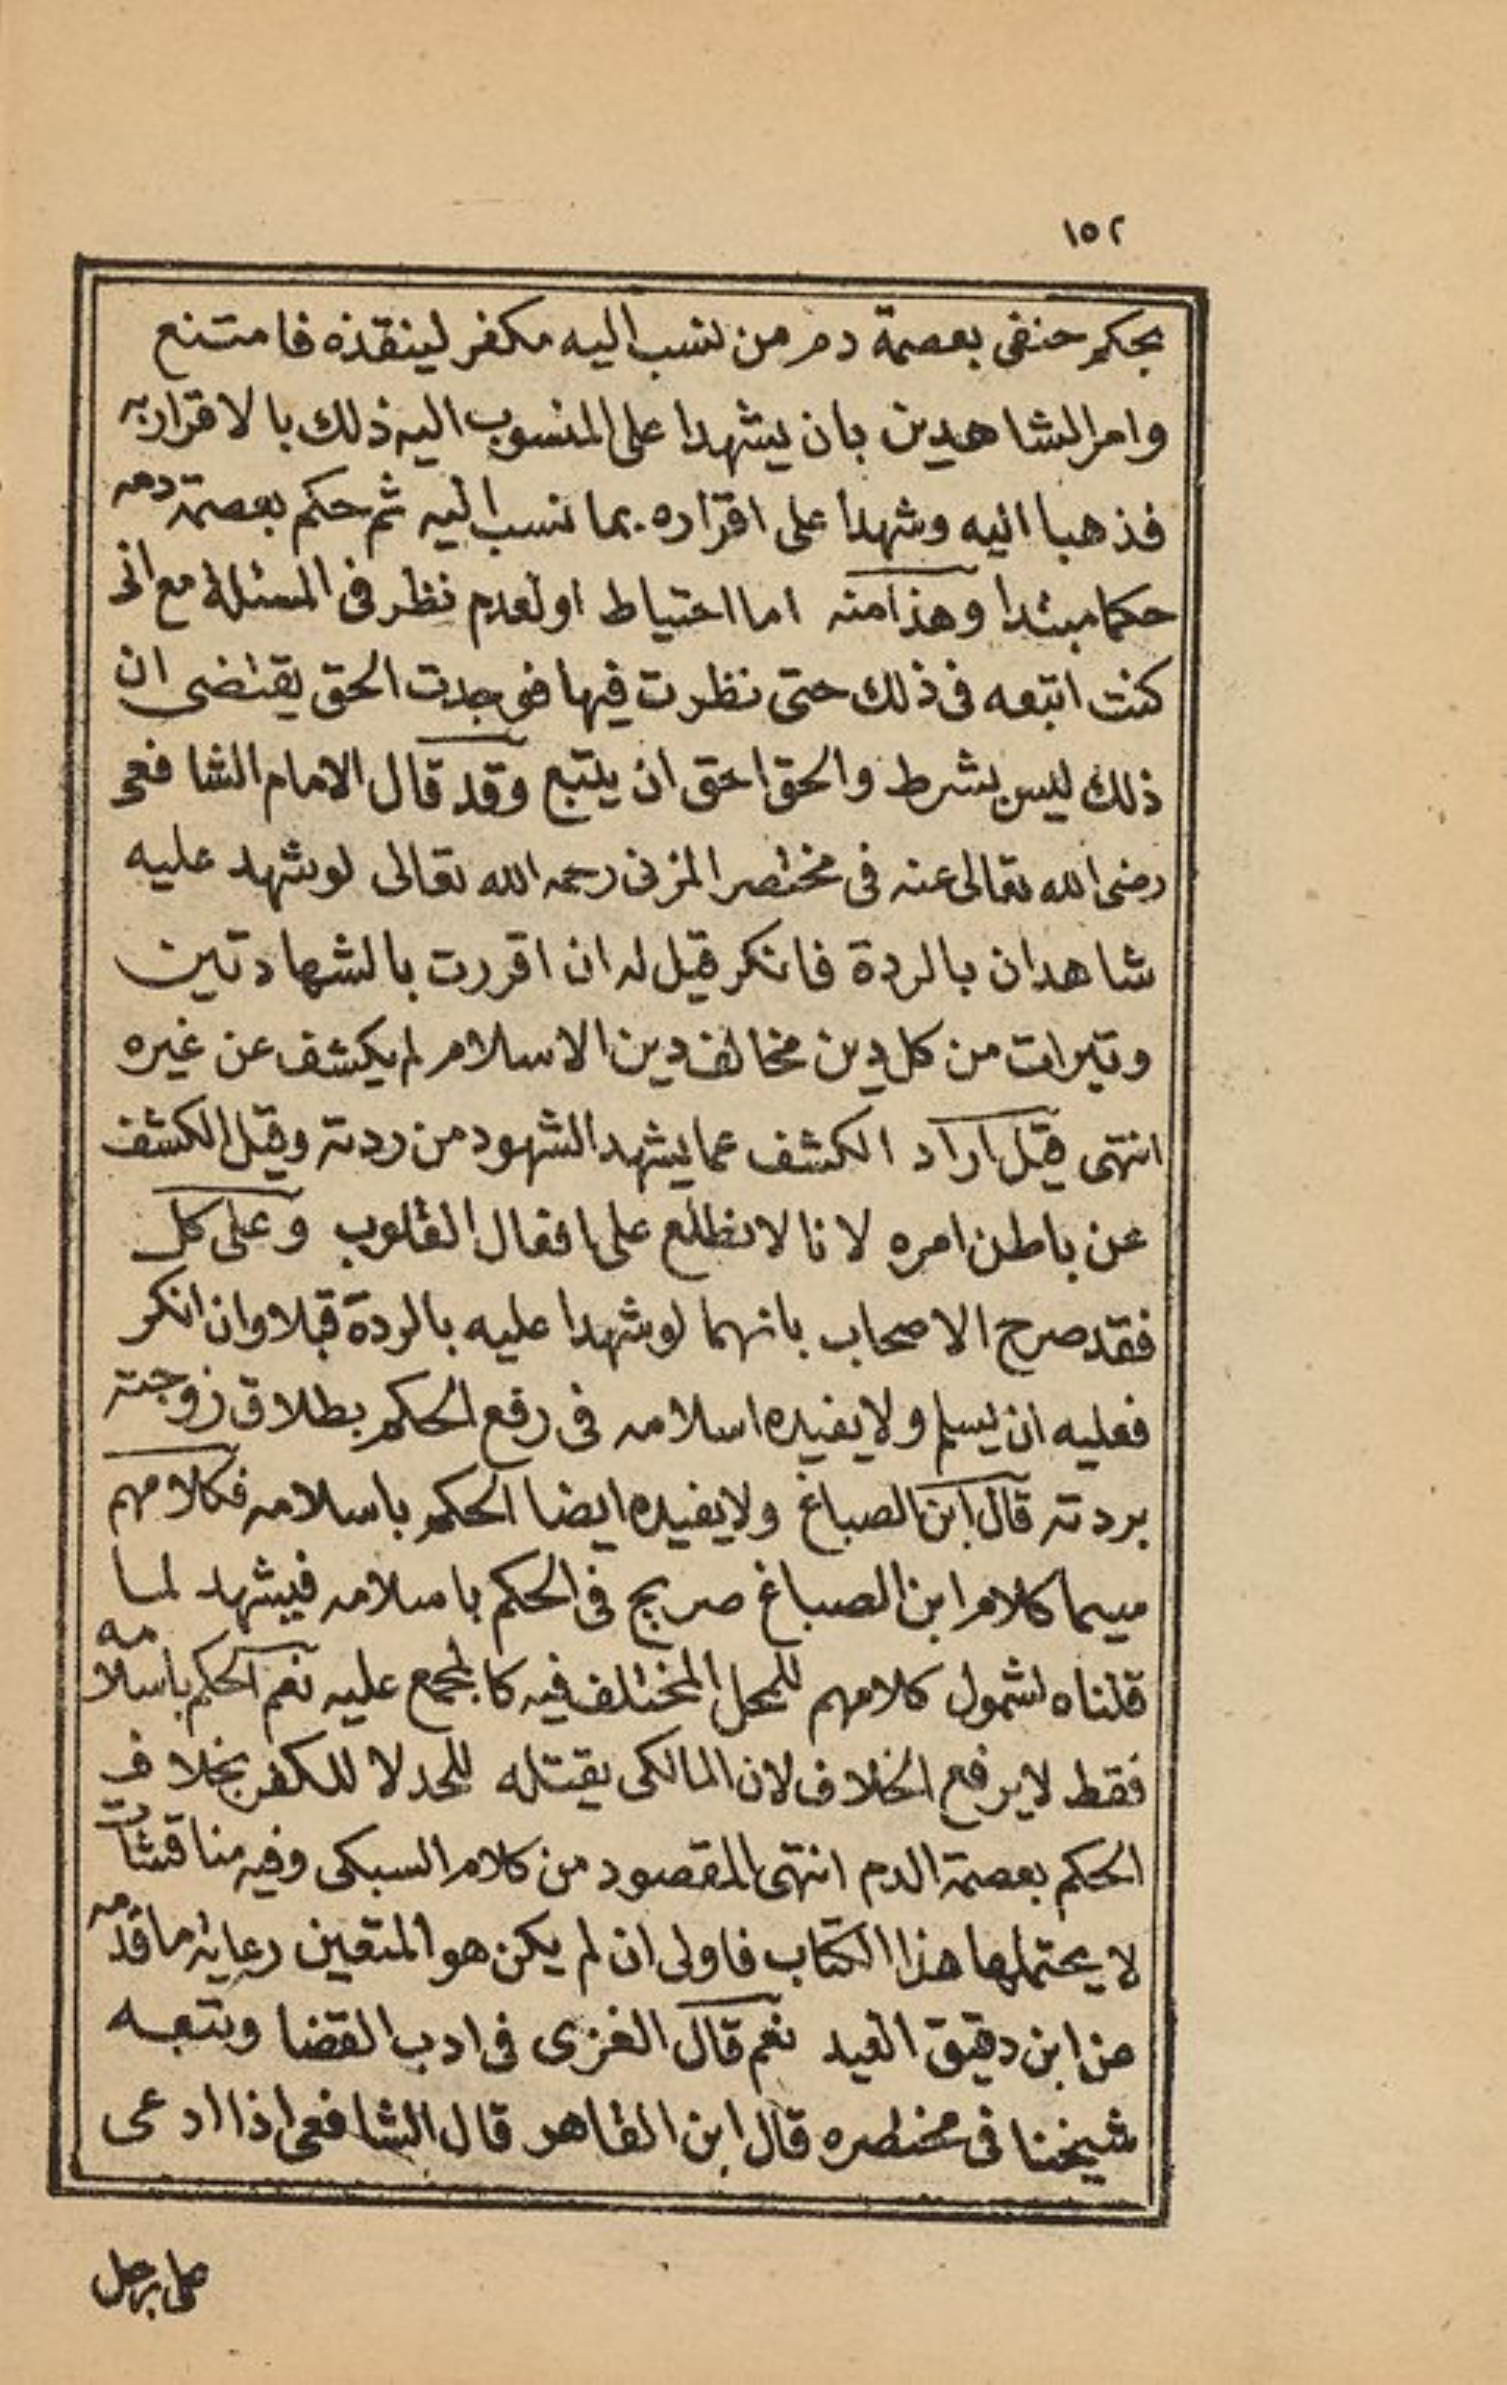 ١٥٢
بحكم حنفى بعصمة دم من نسب اليه مكفر لينقذه فامتنع
وامر الشاهدين بان يشهدا على المنسوب اليه ذلك بالاقرار به
فذهبا اليه وشهدا على اقراره بما نسب اليه ثم حكم بعصمة دمه
حكما مبتدا وهذا منه اما احتياط او لعدم نظر فى المسئلة مع انى
كنت اتبعه فى ذلك حتى نظرت فيها فوجدت الحق يقتضى ان
ذلك ليس بشرط والحق احق ان يتبع وقد قال الامام الشافعى
رضى الله تعالى عنه فى مختصر المزنى رحمه الله تعالى لو شهد عليه
شاهدان بالردة فانكر قيل له ان اقررت بالشهادتين
وتبرات من كل دين مخالف دين الاسلام لم يكشف عن غيره
انتهى قيل اراد الكشف عما يشهد الشهود من ردته وقيل الكشف
عن باطن امره لانا لا نطلع على افعال القلوب وعلى كل
فقد صرح الاصحاب بانهما لو شهدا عليه بالردة قبلا وان انكر
فعليه ان يسلم ولا يفيده اسلامه فى رفع الحكم بطلاق زوجته
بردته قال ابن الصباغ ولا يفيده ايضا الحكم باسلامه فكلامهم
سيما كلام ابن الصباغ صريح فى الحكم باسلامه فيشهد لما
قلناه لشمول كلامهم للمحل المختلف فيه كالمجمع عليه نعم الحكم باسلامه
فقط لا يرفع الخلاف لان المالكى يقتله للحد لا للكفر بخلاف
الحكم بعصمة الدم انتهى المقصود من كلام السبكى وفيه مناقشات
لا يحتملها هذا الكتاب فاولى ان لم يكن هو المتعين رعاية ما قدمه
عن ابن دقيق العيد نعم قال الغزى فى ادب القضا وتبعه
شيخنا فى مختصره قال ابن القاهر قال الشافعى اذا ادعى
على رجل